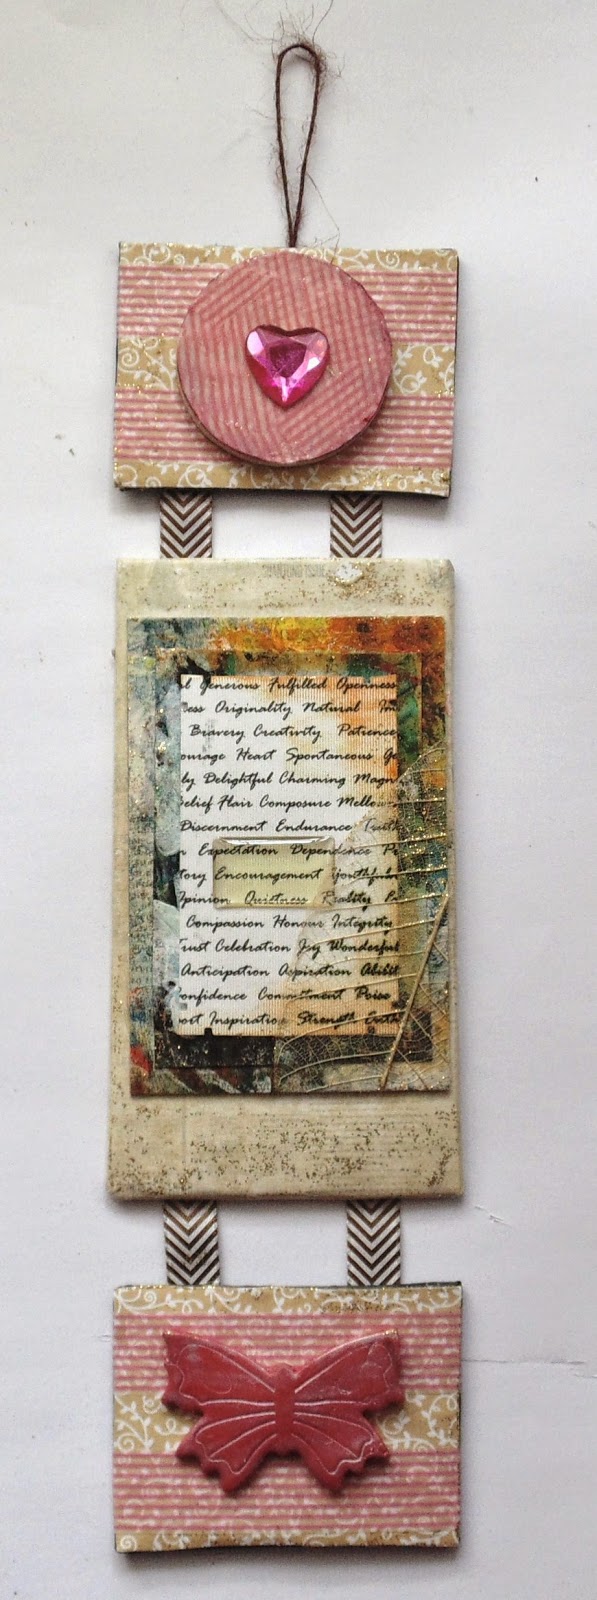 Generous Fulfilled Openness
Originality Natural
Bravery Creativity Patience
ourage Heart Spontaneous
ly Delightful Charming Magn
elief Flair Composure Mellow
Discernment Endurance Truth
Expectation Dependence
tory Encouragement Youthful
pinion Quietness Reality
Compassion Honour Integrity
Trust Celebration Joy Wonderful
Anticipation Aspiration Abilit
onfidence Commitment Poise
ort Inspiration Strength